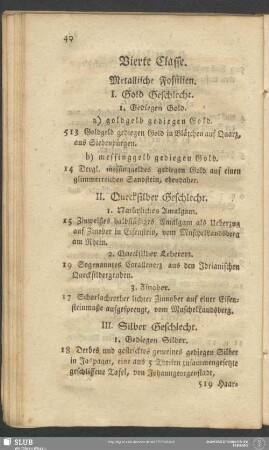 40
Vierte Classe.
Metallische Fossilien.
I. Gold Geschlecht.
1. Gediegen Gold.
a) goldgelb gediegen Gold.
513 Goldgelb gediegen Gold in Blätchen auf Quarz,
aus Siebenbürgen.
b) messinggelb gediegen Gold.
14 Dergl. messinggelbes gediegen Gold auf einen
glimmerichen Sandstein, ebendaher.
II. Quecksilber Geschlecht.
1. Natürliches Amalgam.
15 Zinweißes halbflüßiges Amalgam als Ueberzug
auf Zinober in Eisenstein, vom Muschellandsberg
am Rhein.
2. Quecksilber Lebererz.
16 Sogenanntes Corallenerz aus den Idrianischen
Quecksilbergruben.
3. Zinober.
17 Scharlachrother lichter Zinnober auf einer Eisen-
steinmaße aufgesprengt, vom Muschellandsberg.
III. Silber Geschlecht.
1. Gediegen Silber.
18 Derbes und gestricktes gemeines gediegen Silber
in Jaspagat, eine aus 5 Theilen zusammengesetzte
geschliffene Tafel, von Johanngeorgenstadt,
519 Haar-